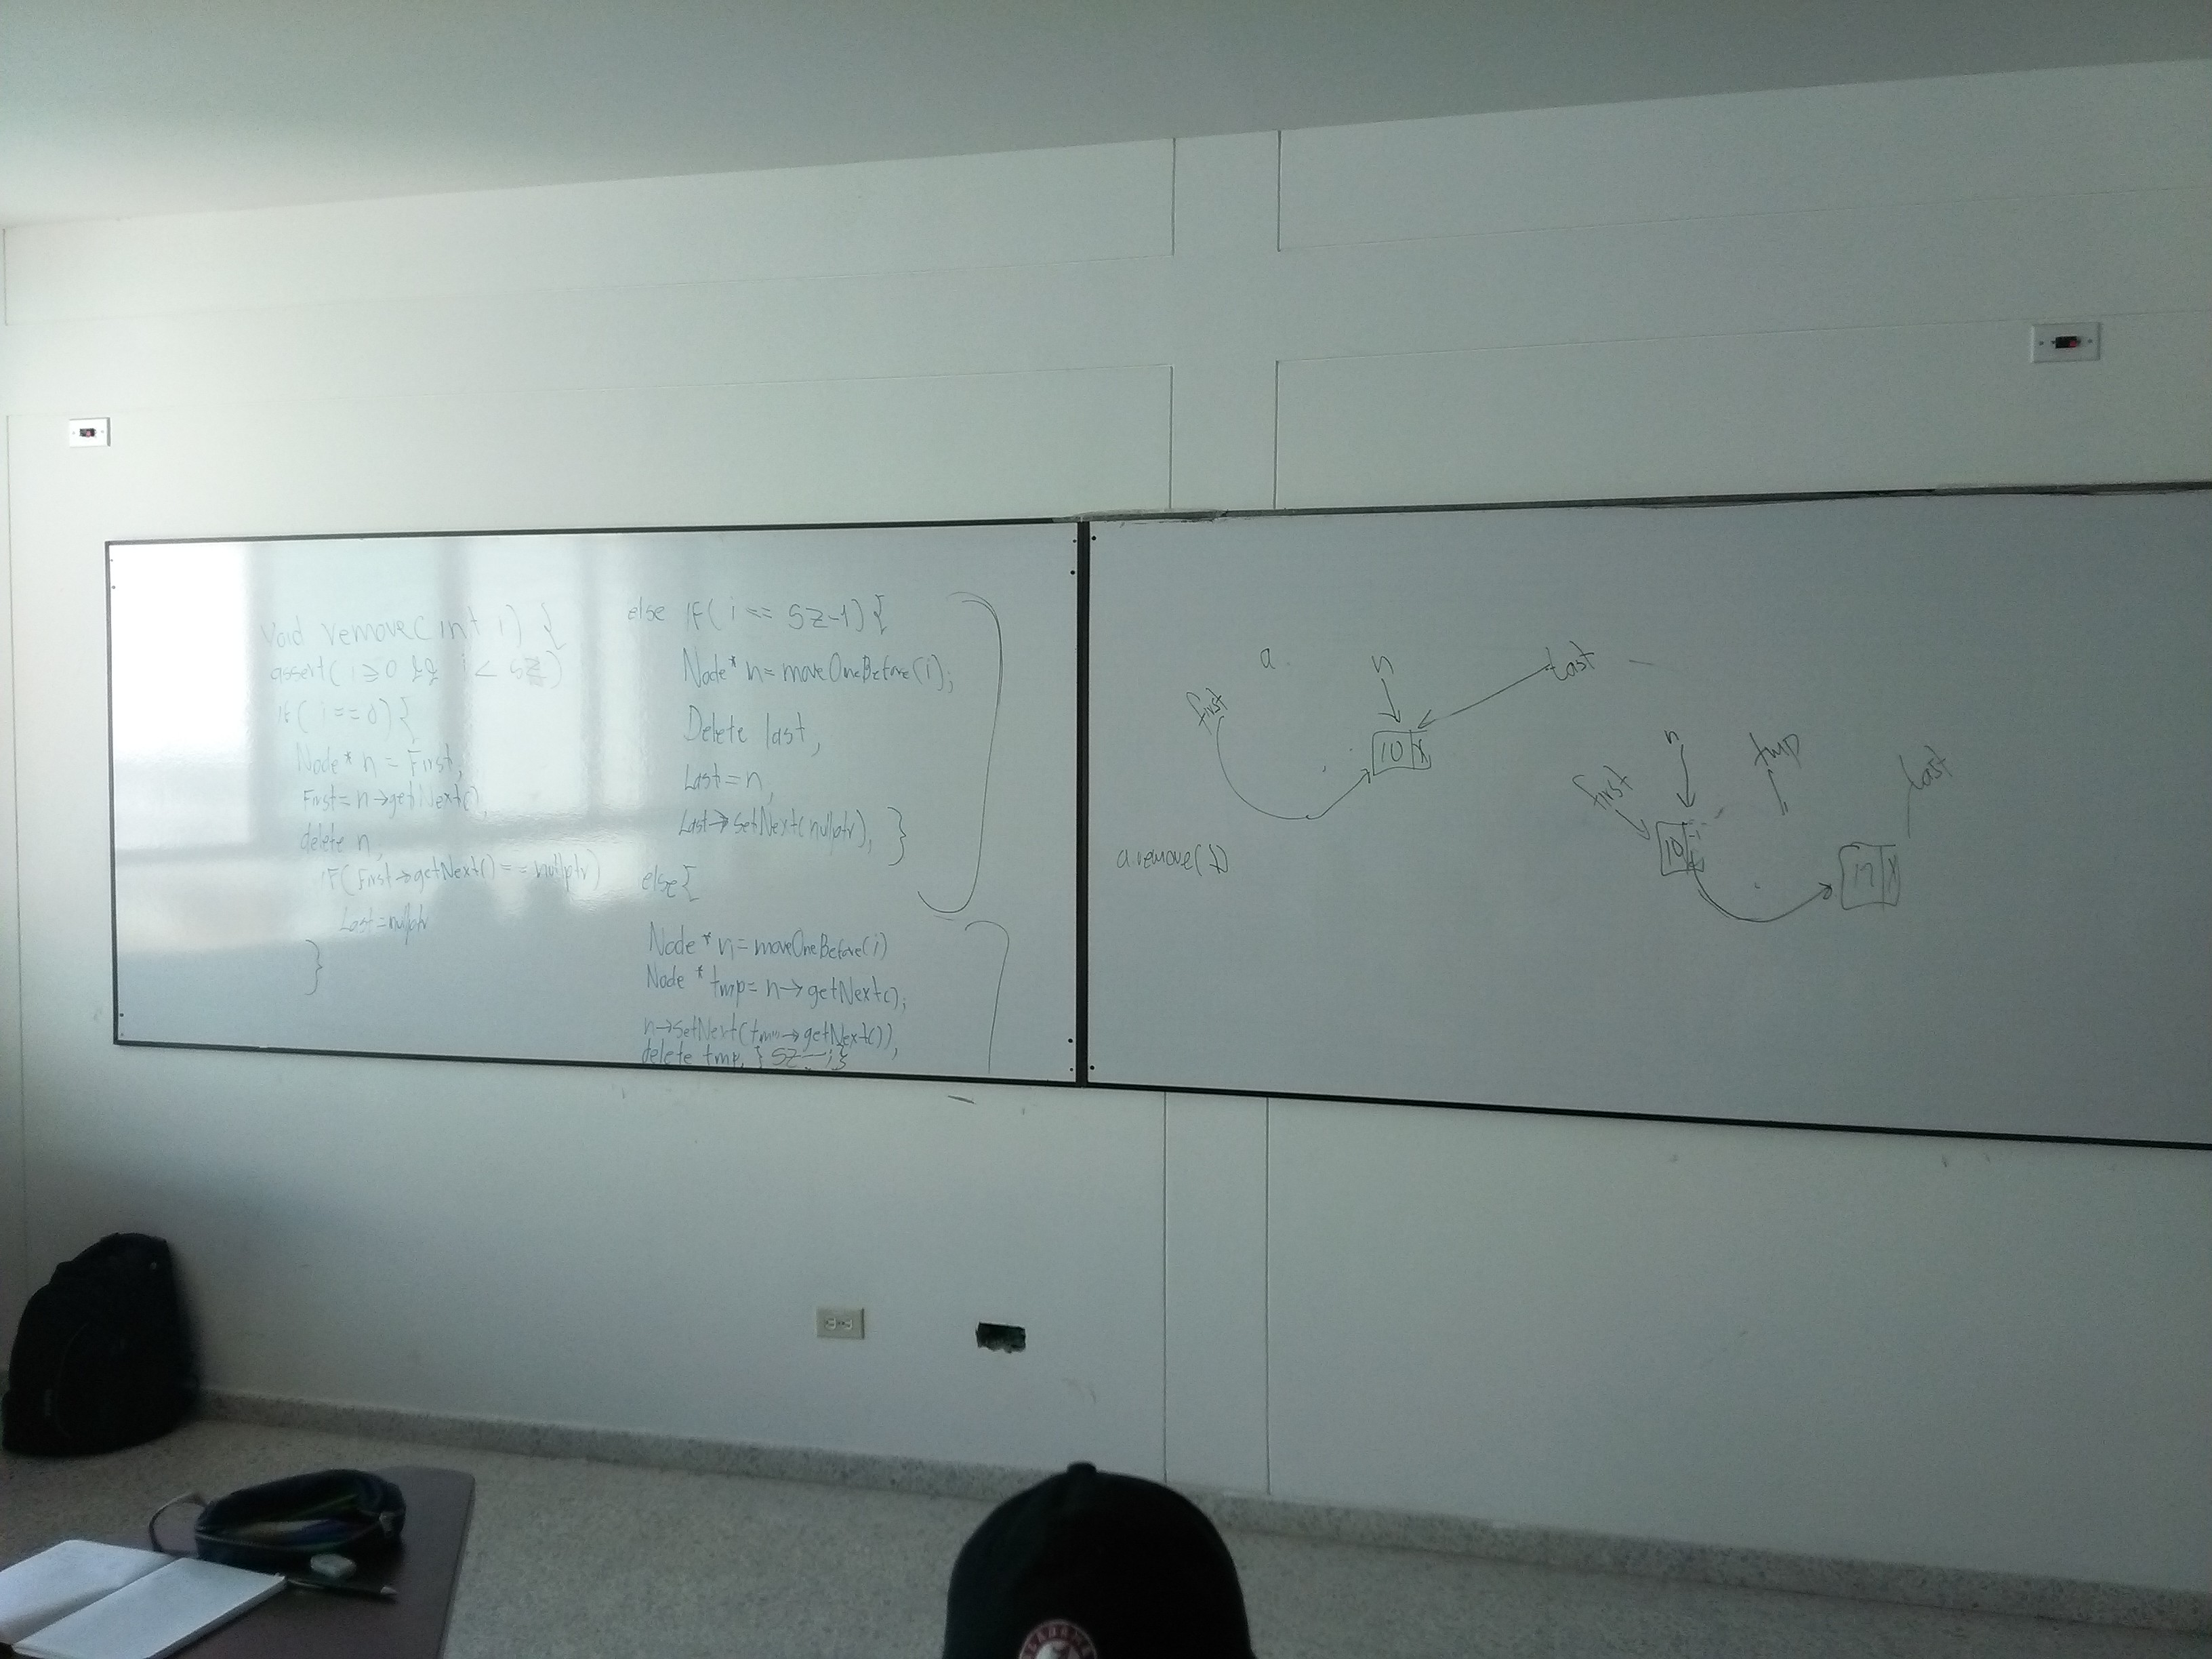 void remove(int i) {
assert(i≥0 && i < sz)
if(i==0){
Node* n = First;
First=n→getNext();
delete n;
IF(First→getNext()==nullptr)
Last=nullptr
}
else IF(i == SZ-1){
Node* n=moveOneBefore(i);
Delete last;
Last=n;
Last→setNext(nullptr); }
else{
Node *n=moveOneBefore(i)
Node *tmp=n→getNext();
n→setNext(tmp→getNext());
delete tmp; } SZ--;}
a
n
last
first
10 X
a.remove(1)
n
tmp
last
first
10
17 X